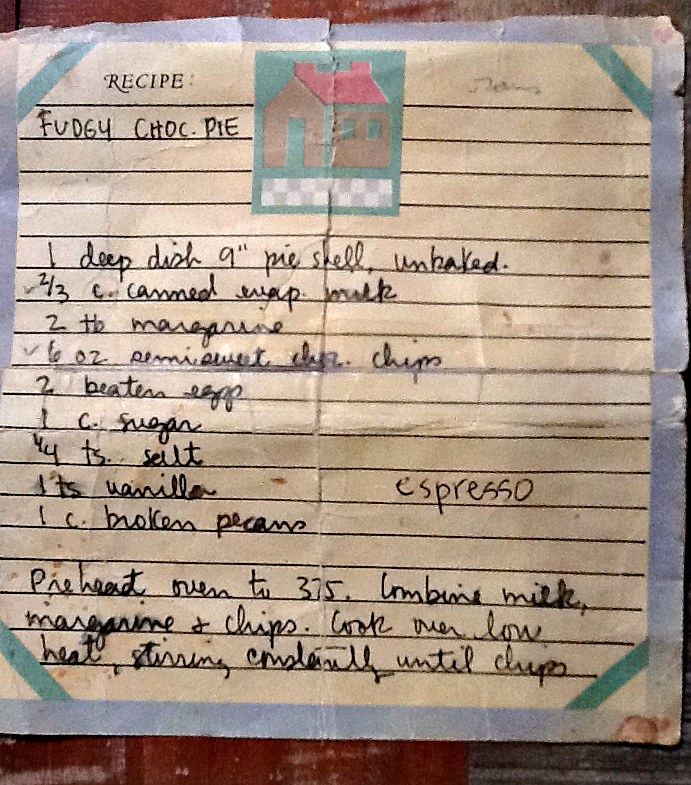 RECIPE:
FUDGY CHOC. PIE
1 deep dish 9" pie shell, unbaked.
2/3 c. canned evap. milk
2 tb margarine
6 oz semisweet choc. chips
2 beaten eggs
1 c. sugar
1/4 ts. salt
1 ts vanilla espresso
1 c. broken pecans
Preheat oven to 375. Combine milk,
margarine & chips. Cook over low
heat, stirring constantly until chips